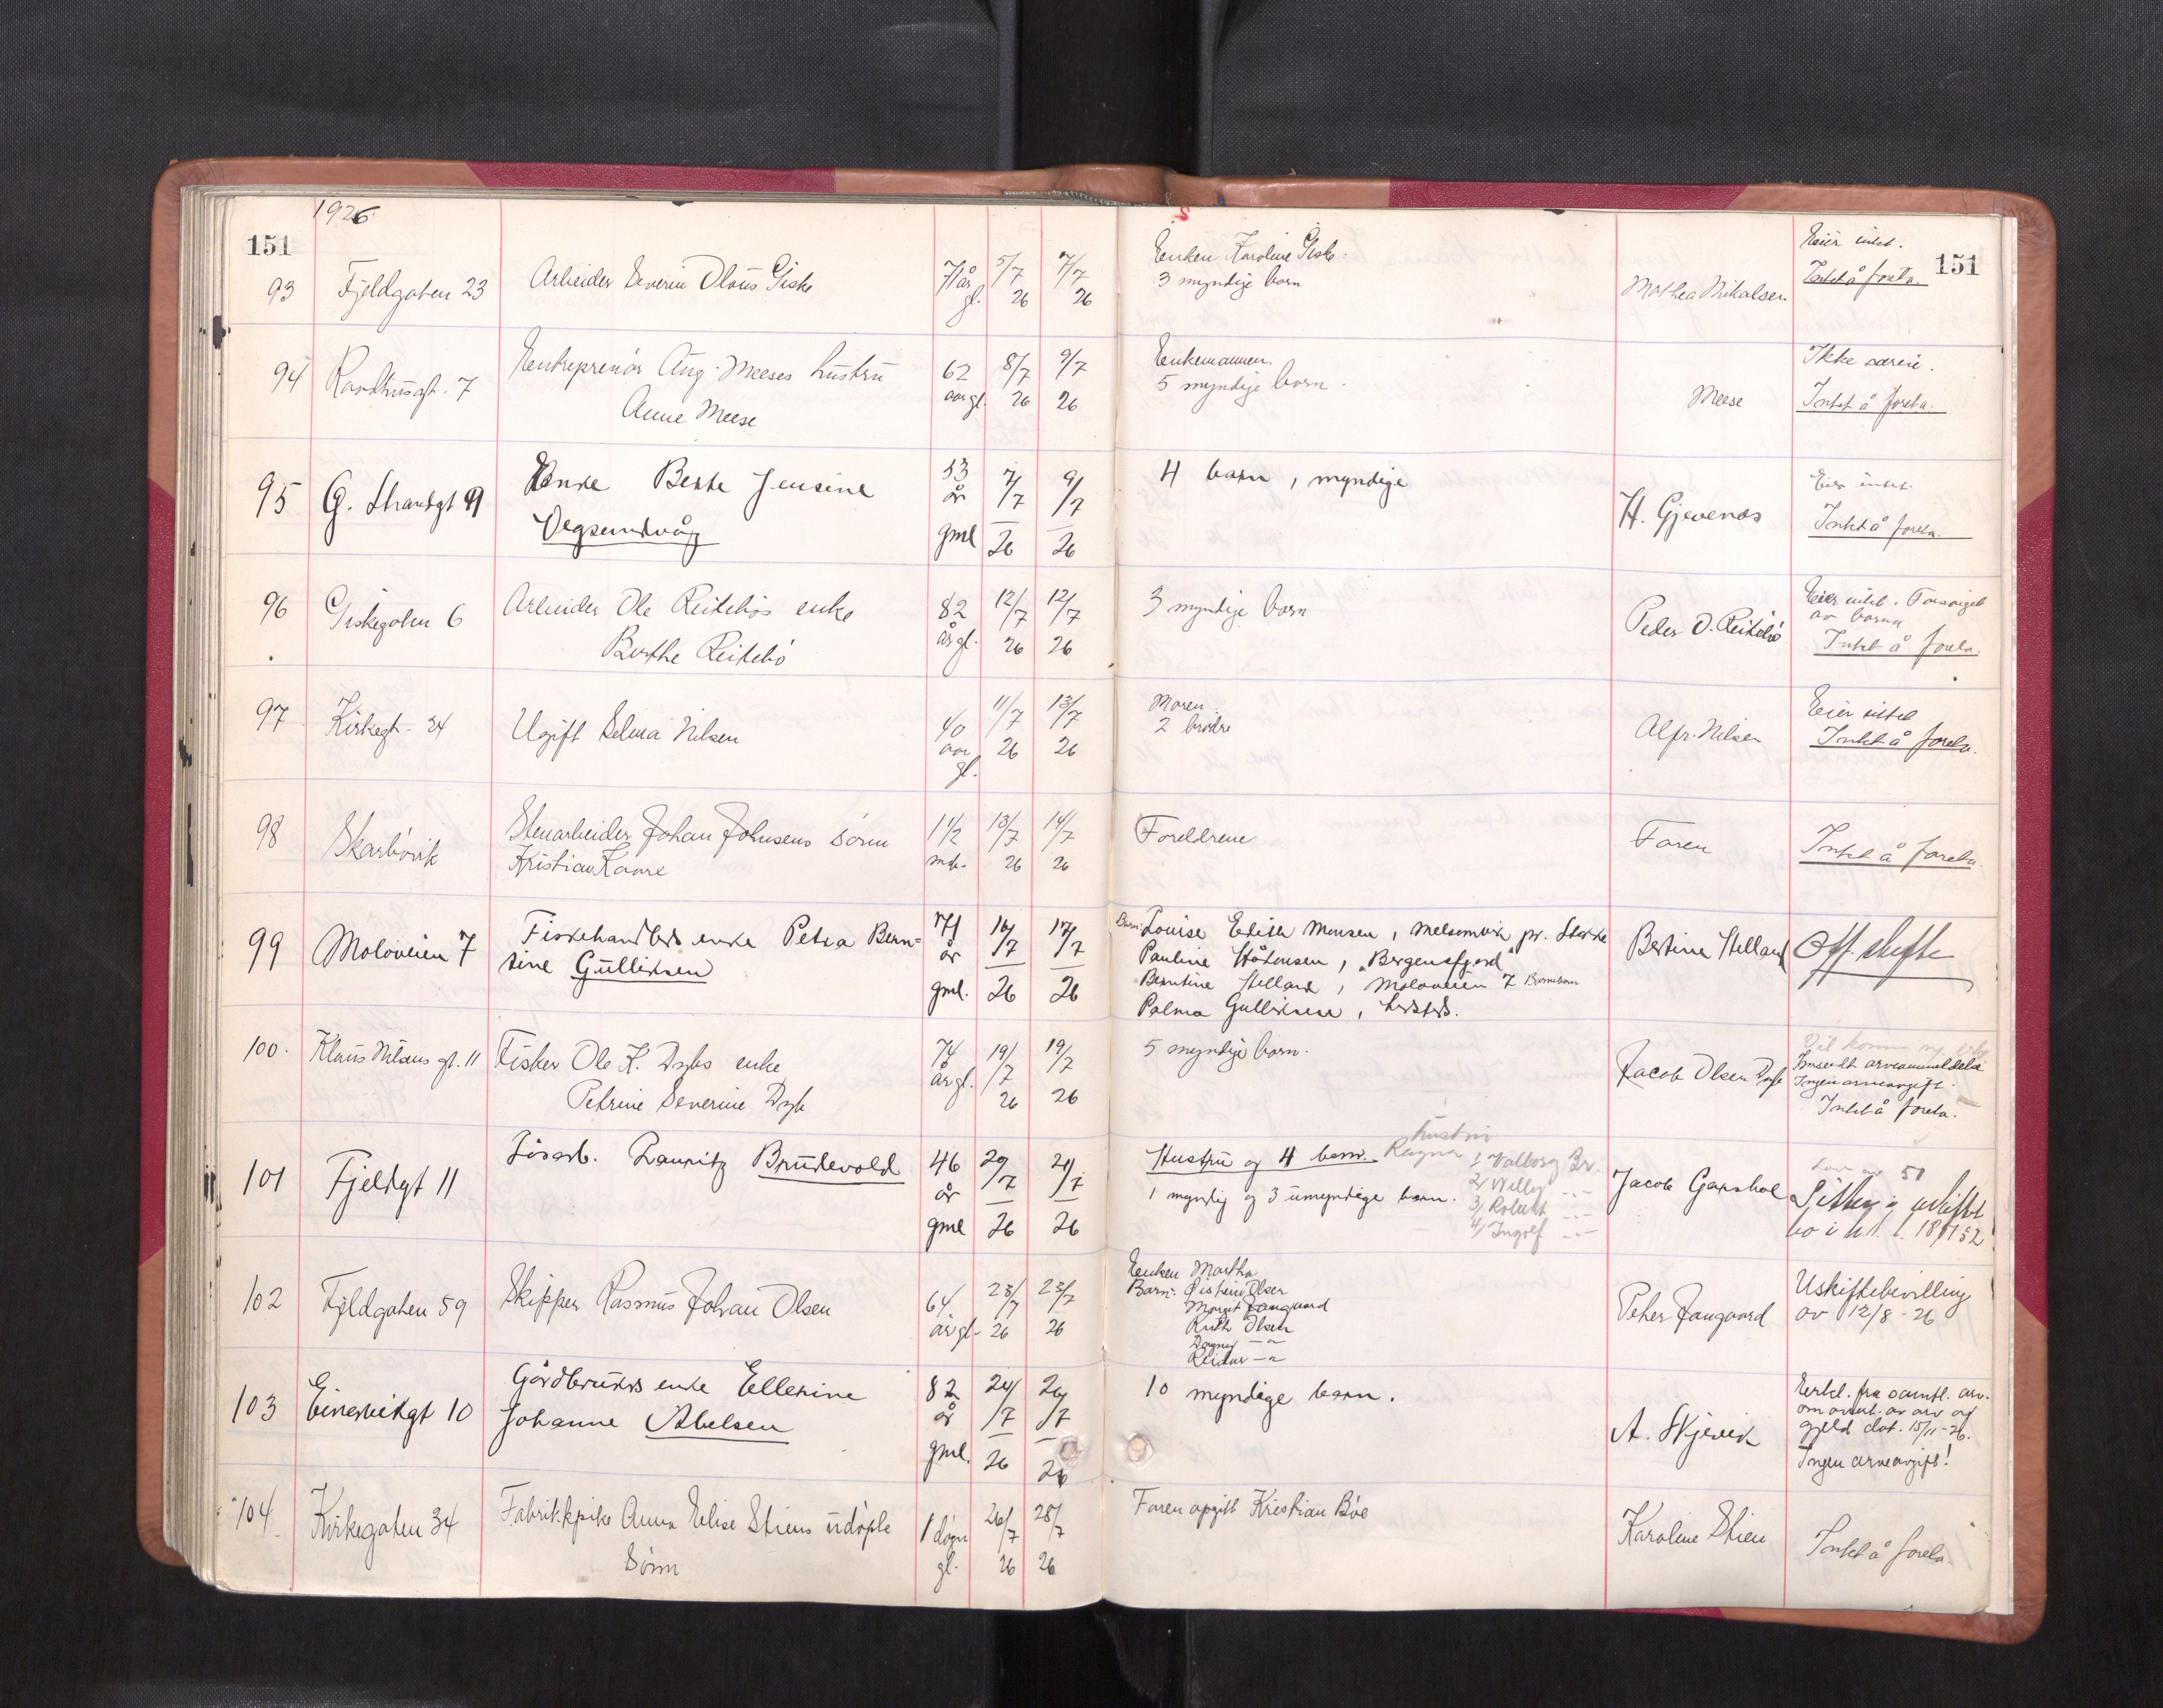 1926
151
151
93 Fjeldgaten 23 Arbeider Severin Olaus Giske 71 år gl. 5/7 26 7/7 26 Enken Karoline Giske. Mathea Mikalsen Eier intet.
3 myndige barn Intet å foreta.
94 Raadhusgt. 7 Entreprenör Aug. Meeses hustru 62 aar gl. 8/7 26 9/7 26 Enkemannen. Meese Ikke særeie.
Anne Meese 5 myndige barn. Intet å foreta.
95 G. Strandgt 9 Enke Berte Jensine 83 år gml 7/7 26 9/7 26 4 barn, myndige H. Gjevenes Eier intet.
Vegsundvåg Intet å foreta.
96 Giskegaten 6 Arbeider Ole Reitebös enke 82 år gl. 12/7 26 12/7 26 3 myndige barn Peder O. Reitebö Eier intet. Forsörget
Berthe Reitebö av barna
Intet å foreta.
97 Kirkegt. 34 Ugift Selma Nilsen 40 aar gl. 11/7 26 13/7 26 Moren. Alfr. Nilsen Eier intet
2 brödre Intet å foreta.
98 Skarbövik Stenarbeider Johan Johnsens sönn 1 1/2 mdr. 13/7 26 14/7 26 Foreldrene Faren Intet å foreta.
Kristian Kaare
99 Moloveien 7 Fiskehandlers enke Petra Bern= 71 år gml. 16/7 26 17/7 26 Barn: Louise Edith Monsen, Melsomvik pr. Bertine Stelland Off. skifte
tine Gulliksen Pauline Håkonsen, "Bergensfjord"
Berntine Stelland, Moloveien 7 Barnebarn
Palma Gulliksen,
100. Klaus Nilsens gt. 11 Fisker Ole K. Dybs enke 74 år gl. 19/7 26 19/7 26 5 myndige barn. Jacob Olsen Dyb
Petrine Severine Dyb Innsendt arveanmeldelse
Ingen arveavgift.
Intet å foreta.
101 Fjeldgt 11 Lösarb. Lauritz Brudevold 46 år gml 20/7 26 21/7 26 Hustru og 4 barn. Jacob Garshol
hustru
Ragna 1/ Valborg Br.
1 myndig og 3 umyndige barn. 2/ Willy
3/ Robert
4/ Ingolf
Sitter i uskiftet
bo i h.t. l. 18/7 52
102 Fjeldgaten 59 Skipper Rasmus Johan Olsen 64 år gl. 23/7 26 23/7 26 Enken Martha Peter Jangaard Uskiftebevilling
Barn: Öistein Olsen av 12/8 - 26
Margit Jangaard
Ruth Olsen
Dagny - " -
Reidar - " -
103 Einervikgt 10 Gårdbrukers enke Ellerine 82 år gml. 24/7 26 26/7 26 10 myndige barn. A. Skjevik Erkl. fra samtl. arv.
Johanne Abelsen om overt. av arv og
gjeld dat. 15/11-26.
Ingen arveavgift!
104. Kirkegaten 34 Fabrikkpike Anna Elise Stiens udöpte 1 dögn gl. 26/7 26 28/7 26 Faren opgitt Kristian Böe Karoline Stien Intet å foreta.
sönn